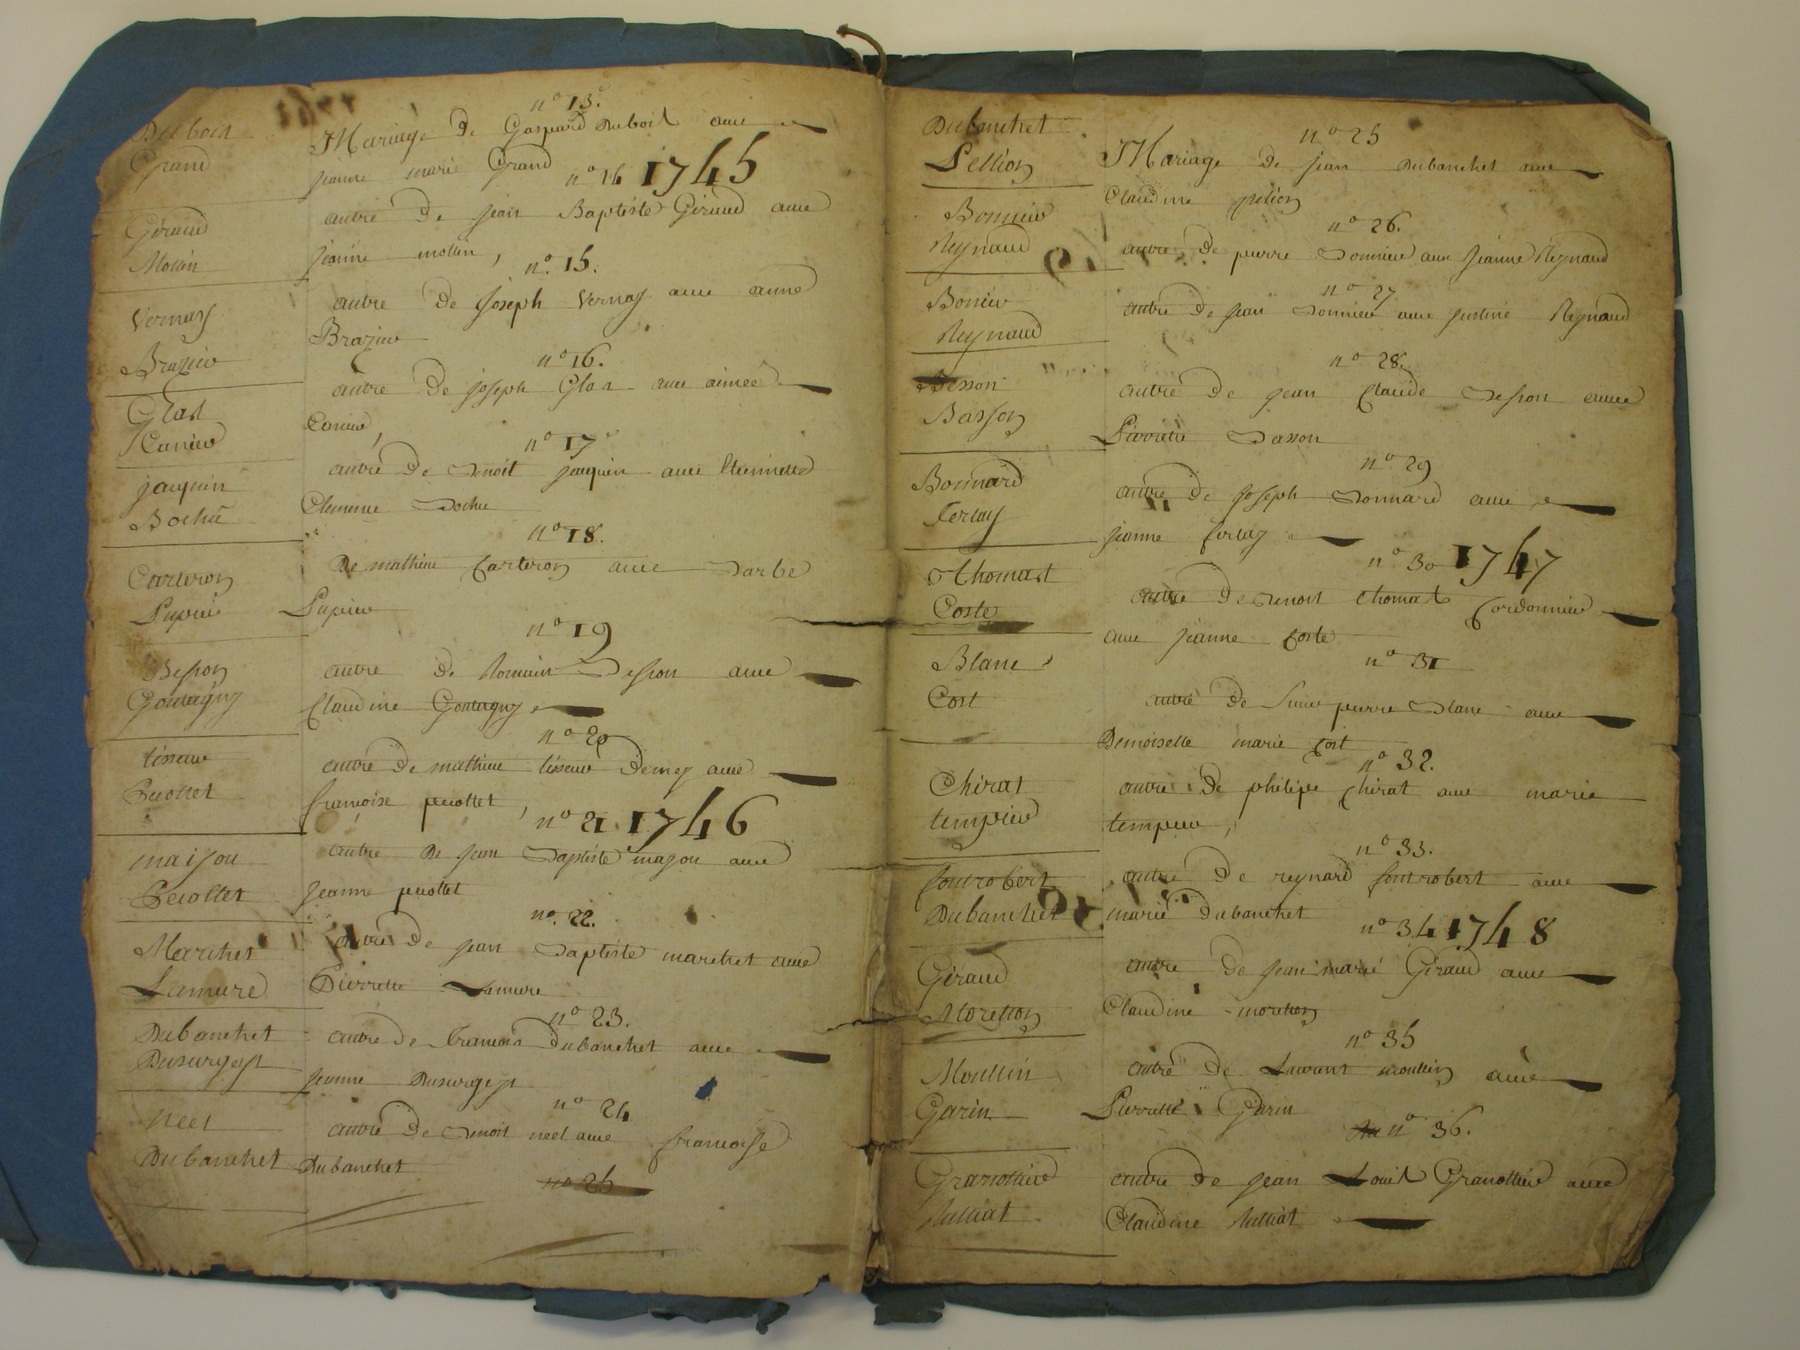 Dubois
Grand
n° 13.
Mariage de Gaspard Dubois avec
jeanne marie Grand
n° 14 1745
Giraud
Mollin
autre de jean Baptiste Giraud avec
jeanne mollin,
n° 15.
Vernay
Brazier
autre de joseph Vernay avec anne
Brazier
n° 16.
Glas
Carrier
autre de joseph Glas avec aimée
Carrier,
n° 17
jaequin
Bochu
autre de Benoit jaequin avec Etiennette
Clemence Bochu
n° 18.
Carteron
Lupin
De mathieu Carteron avec Barbe
n° 19
Besson
Goutagny
autre de Romain Besson avec
Claudine Goutagny
n° 20
tisseur
Pecollet
autre de mathieu tisseur Demey avec
françoise pecollet,
n° 21 1746
maijou
Pecollet
autre De jean Baptiste majou avec
jeanne pecollet
n° 22.
Marchet
Lamure
autre de jean Baptiste marchet avec
Pierrette Lamure
n° 23.
Dubanchet
Dusurgey
autre de françois dubanchet avec
jeanne Dusurgey
n° 24
neel
Dubanchet
autre de Benoit neel avec françoise
Dubanchet
n° 25
Dubanchet
Pellion
n° 25
Mariage de jean Dubanchet avec
Claudine pelion
n° 26.
Bonnier
Reynaud
autre de pierre Bonnier avec jeanne Reynaud
n° 27
Bonier
Reynaud
autre de jean Bonnier avec justine Reynaud
n° 28.
Besson
Basson
autre de jean Claude Besson avec
Pierrette Basson
n° 29
Bonnard
Ferlay
autre de joseph Bonnard avec
jeanne ferlay
n° 30 1747
Thomast
Coste
autre de Benoit thomast Cordonnier
avec jeanne Coste
n° 31
Blanc
Cost
autre de Sieur pierre Blanc avec
Demoiselle marie Cost
n° 32.
Chirat
tempier
autre De philipe Chirat avec marie
tempier,
n° 33.
fontrobert
Dubanchet
autre De reynard fontrobert avec
marie dubanchet
n° 34 1748
Giraud
Moretton
autre de jean marie Giraud avec
Claudine moretton
n° 35
Moullin
Garin
autre de Laurant moullin avec
Pierrette Garin
n° 36.
Granottier
Julliat
autre de jean Louis Granottier avec
Claudine Julliat